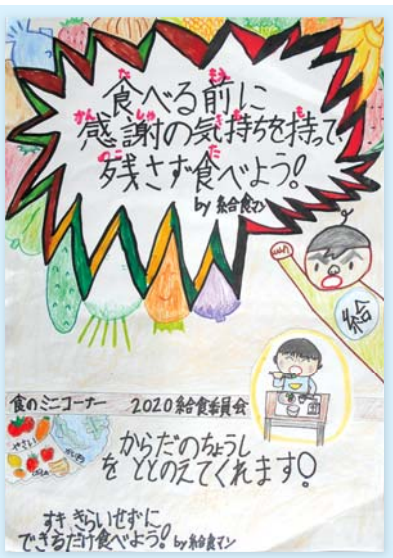 食べる前に
感謝の気持ちを持って、
残さず食べよう!
by 給食マン
給
食のミニコーナー 2020給食委員会
やさい
からだのちょうし
を ととのえてくれます!
すききらいせずに
できるだけ食べよう! by 給食マン